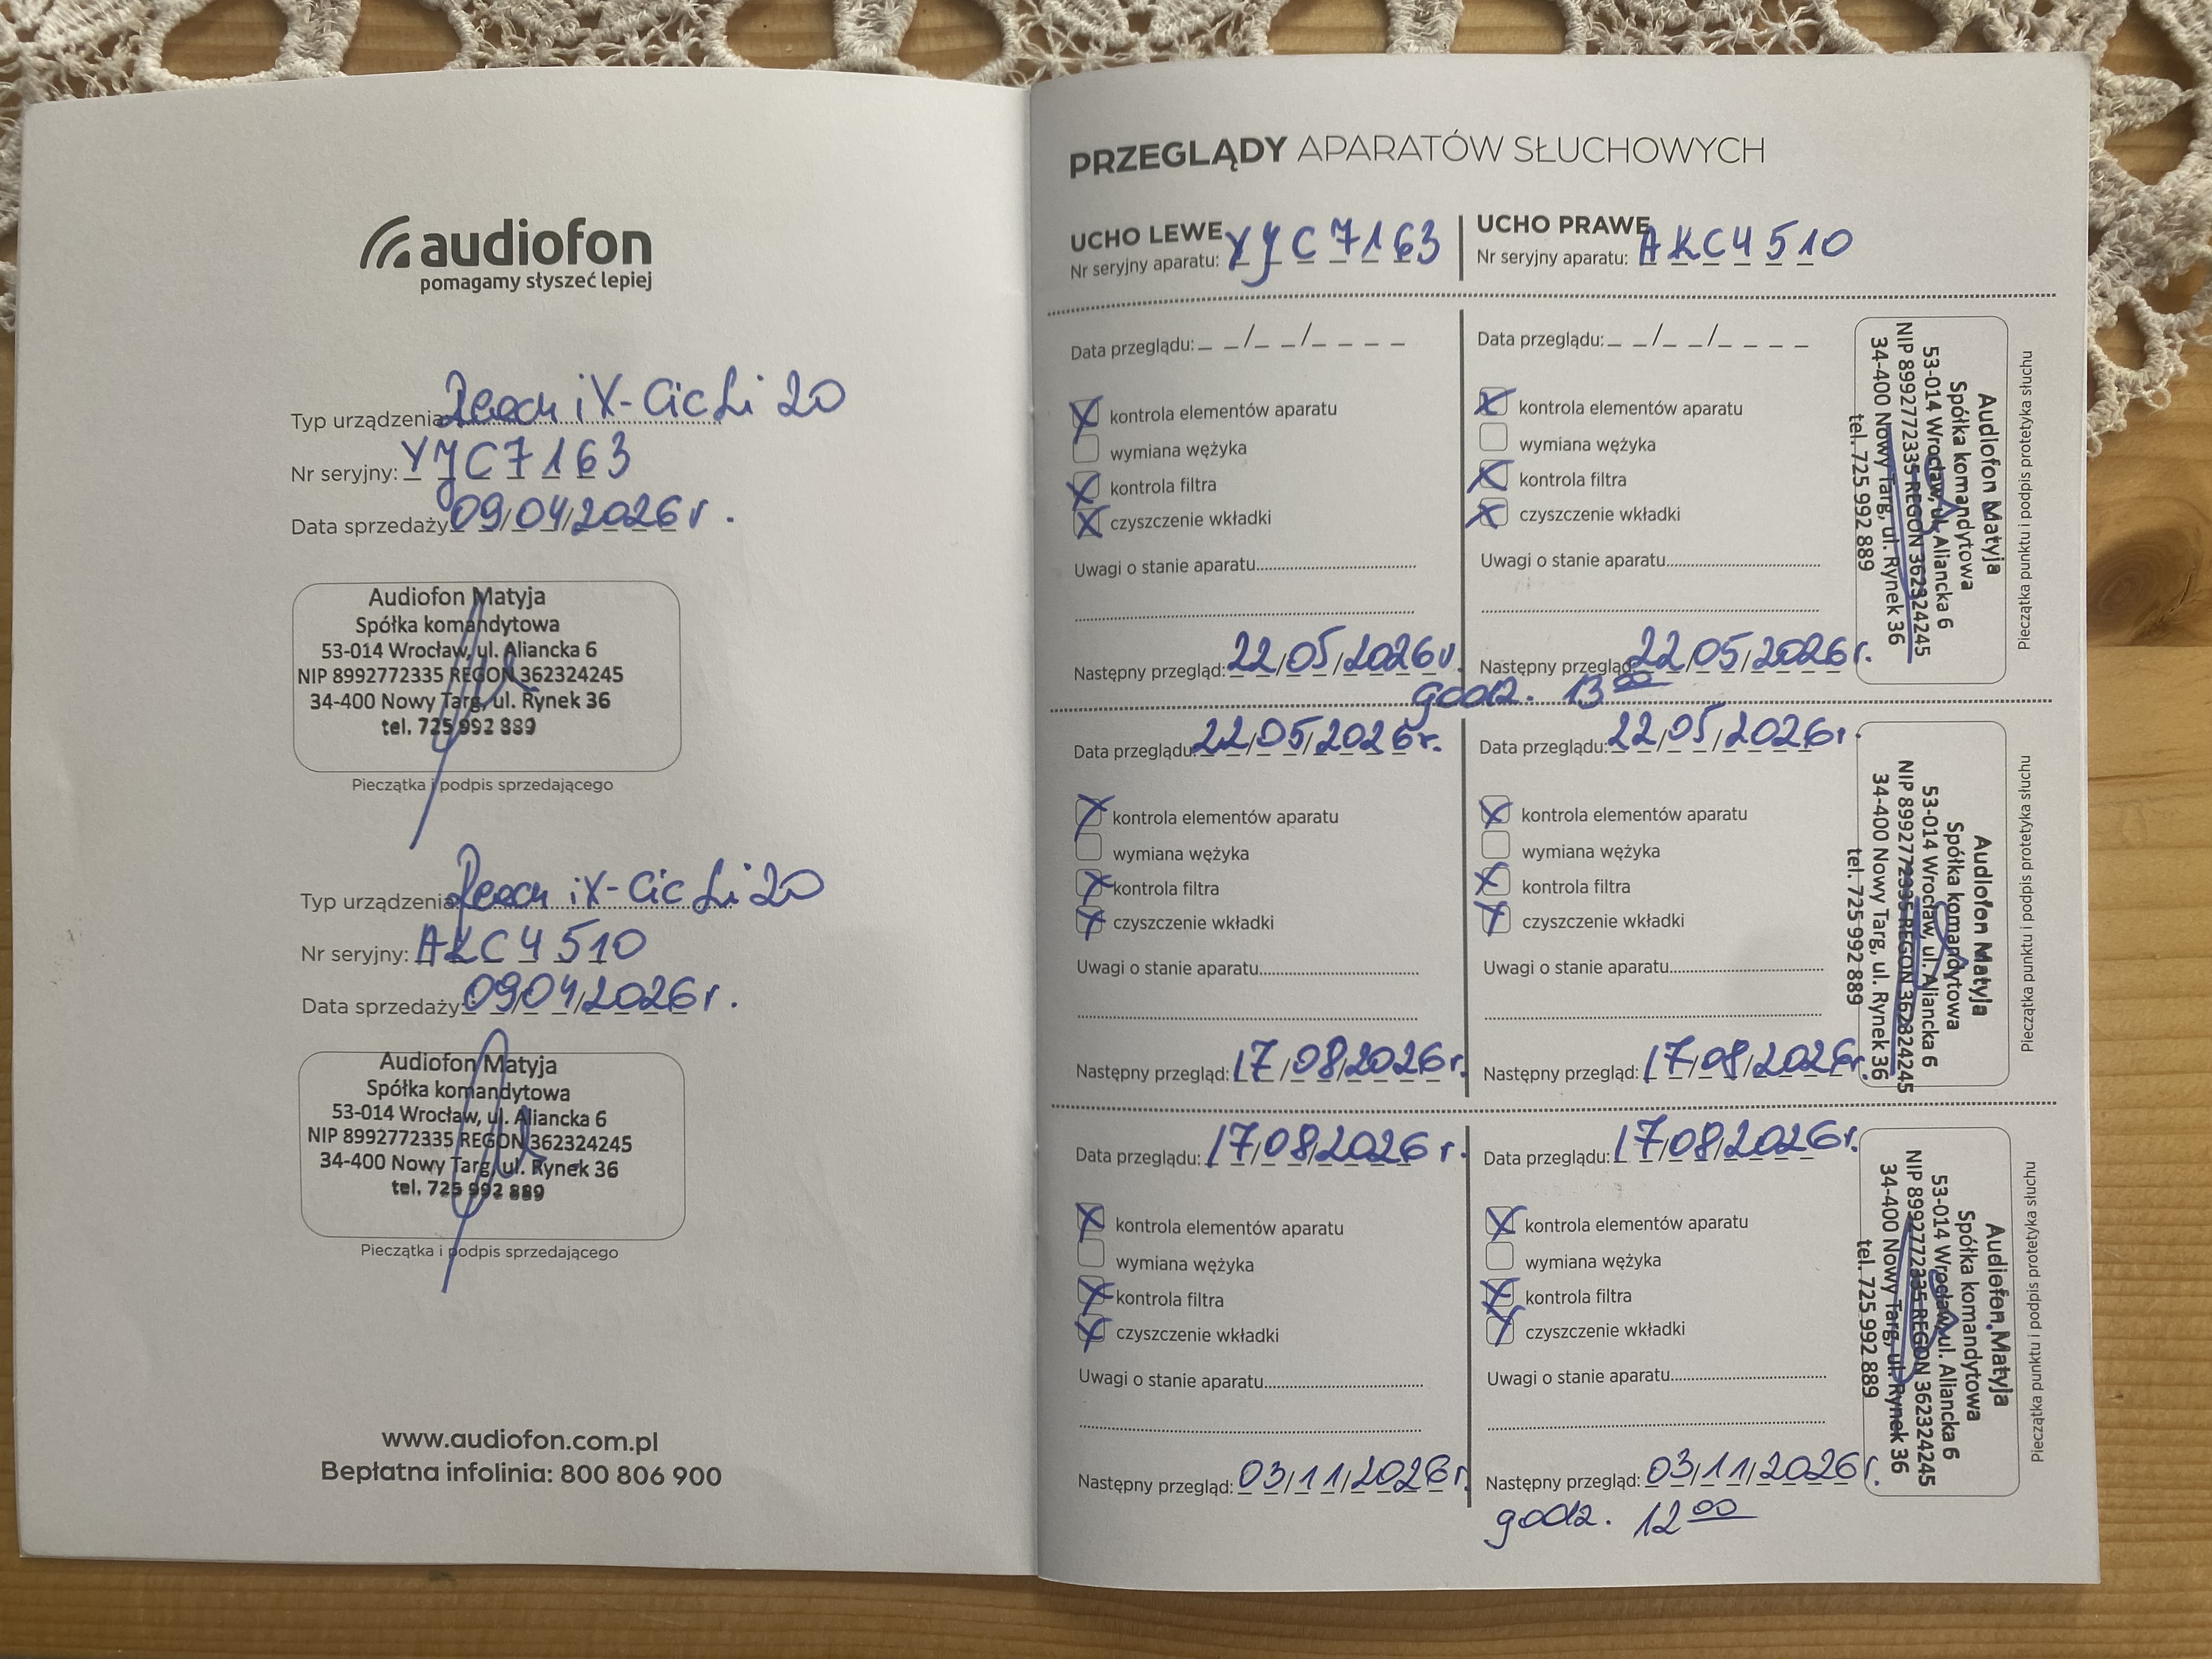 audiofon
pomagamy słyszeć lepiej
Typ urządzenia: iX-Cic Li 20
Nr seryjny: YYC7163
Data sprzedaży 09/04/2026 r.
Audiofon Matyja
Spółka komandytowa
53-014 Wrocław, ul. Aliancka 6
NIP 8992772335 REGON 362324245
34-400 Nowy Targ, ul. Rynek 36
tel. 725 992 889
Pieczątka i podpis sprzedającego
Typ urządzenia: iX-Cic Li 20
Nr seryjny: AKC4510
Data sprzedaży: 09/04/2026 r.
Audiofon Matyja
Spółka komandytowa
53-014 Wrocław, ul. Aliancka 6
NIP 8992772335 REGON 362324245
34-400 Nowy Targ, ul. Rynek 36
tel. 725 992 889
Pieczątka i podpis sprzedającego
www.audiofon.com.pl
Bepłatna infolinia: 800 806 900
PRZEGLĄDY APARATÓW SŁUCHOWYCH
UCHO LEWE
Nr seryjny aparatu: YYC7163
UCHO PRAWE
Nr seryjny aparatu: AKC4510
Data przeglądu: _ _/_ _/_ _ _ _
kontrola elementów aparatu
wymiana wężyka
kontrola filtra
czyszczenie wkładki
Uwagi o stanie aparatu
Następny przegląd: 22/05/2026 r.
Data przeglądu: _ _/_ _/_ _ _ _
kontrola elementów aparatu
wymiana wężyka
kontrola filtra
czyszczenie wkładki
Uwagi o stanie aparatu
Następny przegląd 22/05/2026 r.
godz. 13 00
Audiofon Matyja
Spółka komandytowa
53-014 Wrocław, ul. Aliancka 6
NIP 8992772335 REGON 362324245
34-400 Nowy Targ, ul. Rynek 36
tel. 725 992 889
Pieczątka punktu i podpis protetyka słuchu
Data przeglądu: 22/05/2026 r.
kontrola elementów aparatu
wymiana wężyka
kontrola filtra
czyszczenie wkładki
Uwagi o stanie aparatu
Następny przegląd: 17/08/2026 r.
Data przeglądu: 22/05/2026 r.
kontrola elementów aparatu
wymiana wężyka
kontrola filtra
czyszczenie wkładki
Uwagi o stanie aparatu
Następny przegląd: 17/08/2026 r.
Audiofon Matyja
Spółka komandytowa
53-014 Wrocław, ul. Aliancka 6
NIP 8992772335 REGON 362324245
34-400 Nowy Targ, ul. Rynek 36
tel. 725 992 889
Pieczątka punktu i podpis protetyka słuchu
Data przeglądu: 17/08/2026 r.
kontrola elementów aparatu
wymiana wężyka
kontrola filtra
czyszczenie wkładki
Uwagi o stanie aparatu
Następny przegląd: 03/11/2026 r.
Data przeglądu: 17/08/2026 r.
kontrola elementów aparatu
wymiana wężyka
kontrola filtra
czyszczenie wkładki
Uwagi o stanie aparatu
Następny przegląd: 03/11/2026 r.
godz. 12 00
Audiofon Matyja
Spółka komandytowa
53-014 Wrocław, ul. Aliancka 6
NIP 8992772335 REGON 362324245
34-400 Nowy Targ, ul. Rynek 36
tel. 725 992 889
Pieczątka punktu i podpis protetyka słuchu